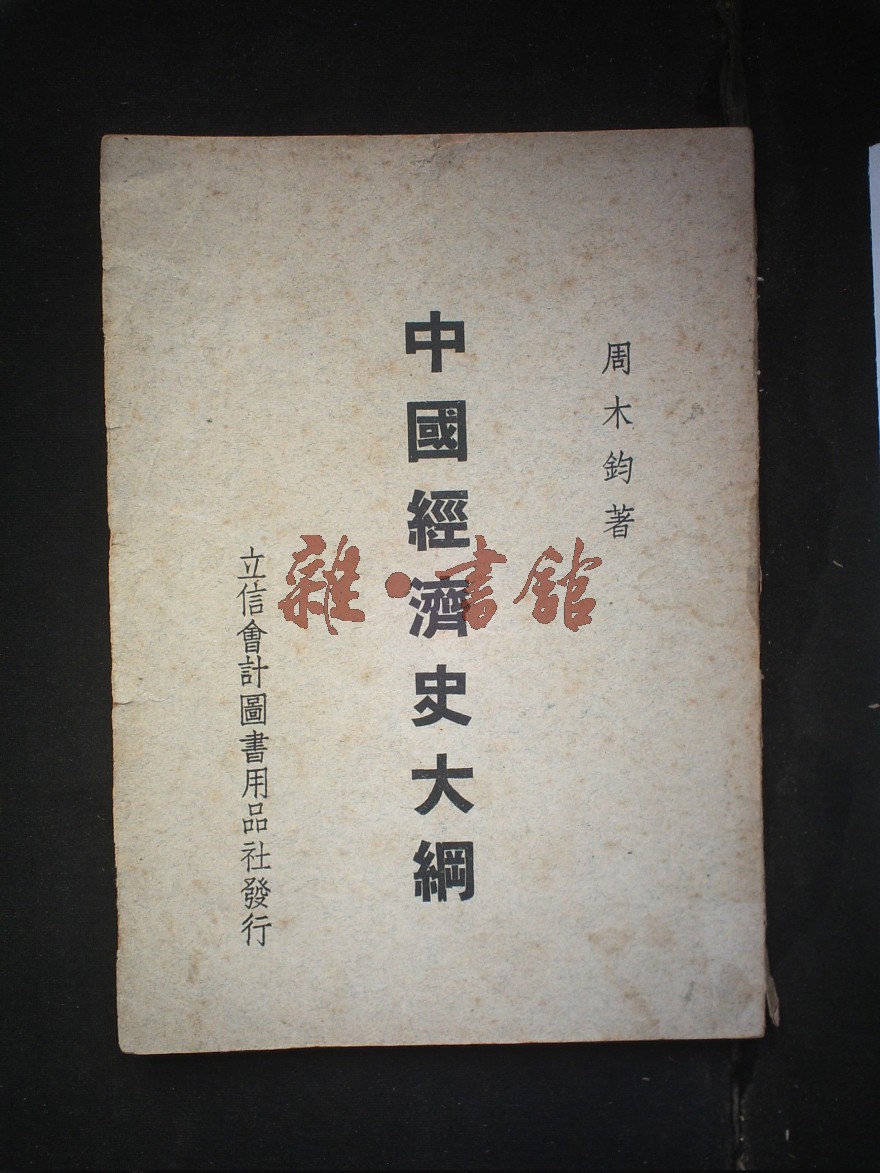 周木鈞著
中國經濟史大綱
立信會計圖書用品社發行
雜·書館